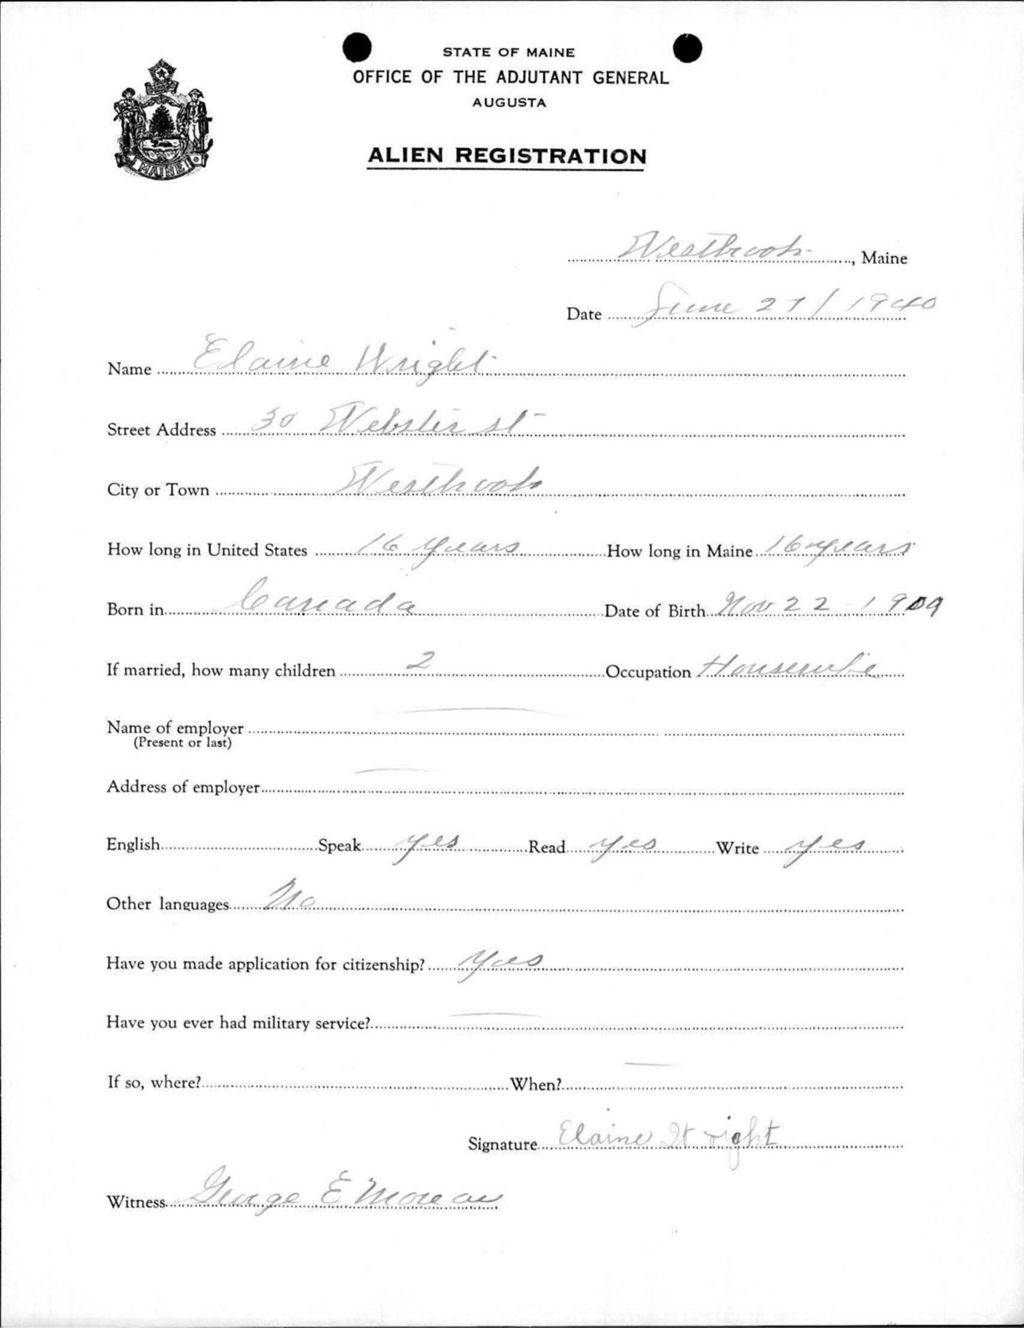 STATE OF MAINE
OFFICE OF THE ADJUTANT GENERAL
AUGUSTA
ALIEN REGISTRATION
MAINE
Westbrook, Maine
Date June 27/1940
Name Elaine Wright
Street Address 30 Webster st
City or Town Westbrook
How long in United States 16 years How long in Maine 16 years
Born in Canada Date of Birth Nov 22 - 1909
If married, how many children 2 Occupation Housewife
Name of employer
(Present or last)
Address of employer
English Speak yes Read yes Write yes
Other languages No
Have you made application for citizenship? Yes
Have you ever had military service?
If so, where? When?
Signature Elaine Wright
Witness George E Moreau